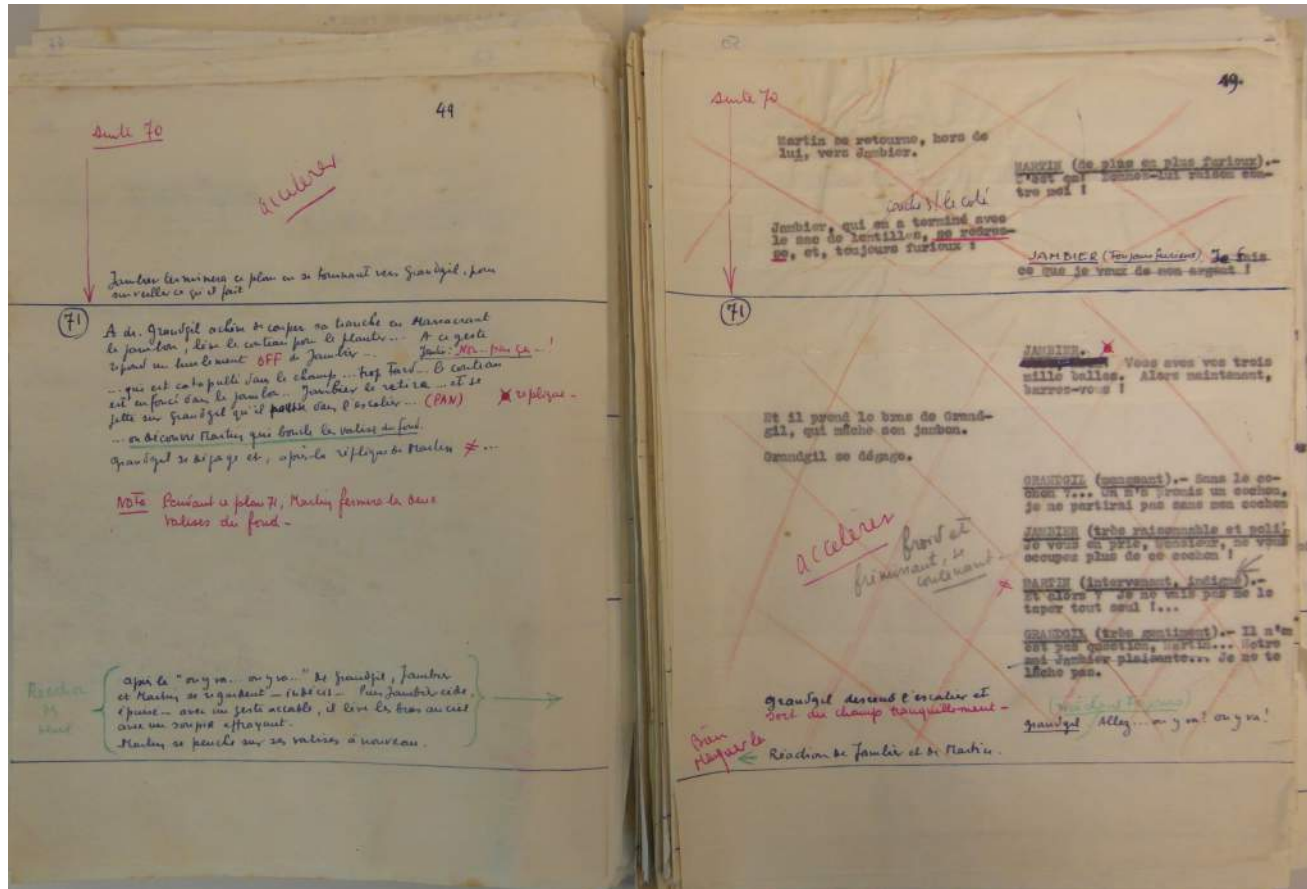 49
Suite 70
accelerer
Jambier terminera ce plan en se tournant vers Grandgil, pour
surveiller ce qu'il fait
71
A dr. Grandgil achève de couper sa tranche en massacrant
le jambon, lève le couteau pour le planter... A ce geste
répond un hurlement OFF de Jambier... Jambier: Non... pas ça...!
... qui est catapulté dans le champ... trop tard... le couteau
est enfoncé dans le jambon... Jambier le retire... et se
jette sur Grandgil qu'il pousse dans l'escalier... (PAN) réplique -
... on découvre Martin qui boucle les valises du fond.
Grandgil se dégage et, après la réplique de Martin ≠ ...
NOTE Pendant ce plan 71, Martin fermera les deux
valises du fond -
Réaction
après le "on y va... on y va..." de Grandgil, Jambier
et Martin se regardent - indécis - Puis Jambier cède,
épuisé - avec un geste accablé, il lève les bras au ciel
avec un soupir effrayant.
Martin se penche sur ses valises à nouveau.
49.
Suite 70
Martin se retourne, hors de
lui, vers Jambier.
MARTIN (de plus en plus furieux).-
C'est ça! Donnez-lui raison con-
tre moi !
couche s/ le coté
Jambier, qui en a terminé avec
le sac de lentilles, se redres-
se, et, toujours furieux :
JAMBIER (Toujours furieux) Je fais
ce que je veux de mon argent !
71
JAMBIER.
Vous avez vos trois
mille balles. Alors maintenant,
barrez-vous !
Et il prend le bras de Grand-
gil, qui mâche son jambon.
Grandgil se dégage.
GRANDGIL (menaçant).- Sans le co-
chon ?... On m'a promis un cochon,
je ne partirai pas sans mon cochon
JAMBIER (très raisonnable et poli)
Je vous en prie, Monsieur, ne vous
occupez plus de ce cochon !
accelerer
froid et
frémissant, se
contenant -
MARTIN (intervenant, indigné).-
Et alors ? Je ne vais pas me le
taper tout seul !...
GRANDGIL (très gentiment).- Il n'en
est pas question, Martin... Notre
ami Jambier plaisante... Je ne te
lâche pas.
Grandgil descend l'escalier et
sort du champ tranquillement -
Grandgil Allez... on y va! on y va!
Bien
Marquer la
Réaction de Jambier et de Martin.